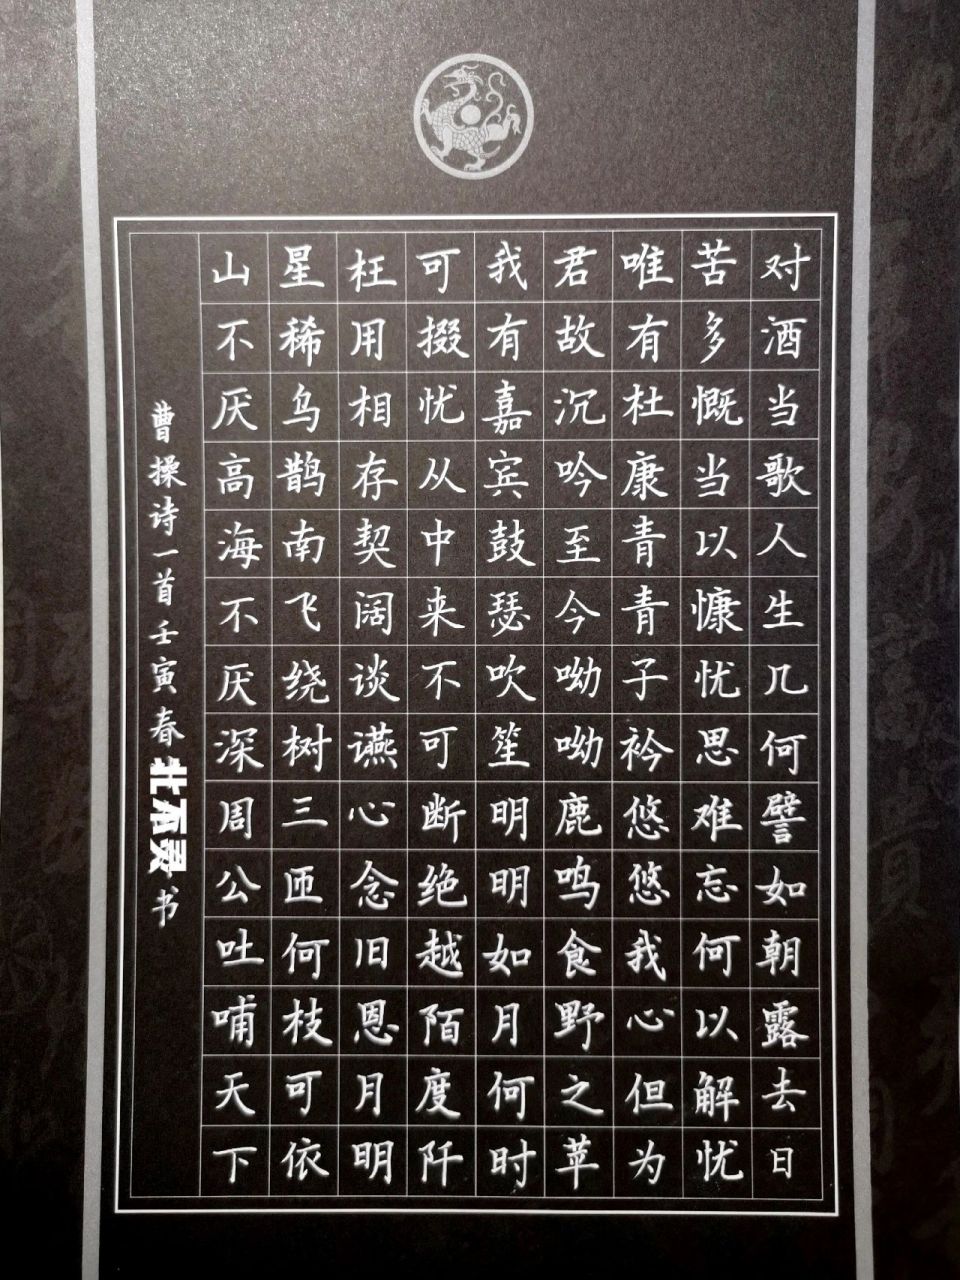 对酒当歌人生几何譬如朝露去日
苦多慨当以慷忧思难忘何以解忧
唯有杜康青青子衿悠悠我心但为
君故沉吟至今呦呦鹿鸣食野之苹
我有嘉宾鼓瑟吹笙明明如月何时
可掇忧从中来不可断绝越陌度阡
枉用相存契阔谈䜩心念旧恩月明
星稀乌鹊南飞绕树三匝何枝可依
山不厌高海不厌深周公吐哺天下
曹操诗一首壬寅春书